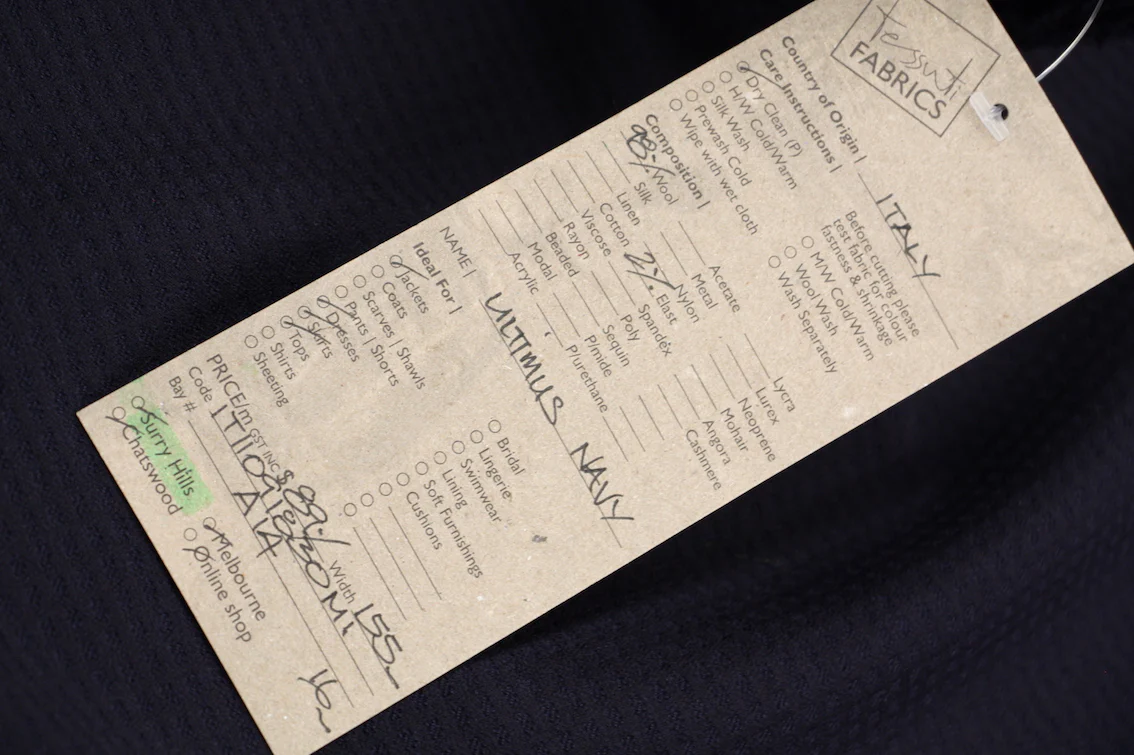 tessuti
FABRICS
Country of Origin | ITALY
Care Instructions |
Dry Clean (P)
H/W Cold/Warm
Silk Wash
Prewash Cold
Wipe with wet cloth
Before cutting please
test fabric for colour
fastness & shrinkage
M/W Cold/Warm
Wool Wash
Wash Separately
Composition |
98% Wool
Silk
Linen
Cotton
Viscose
Rayon
Beaded
Modal
Acrylic
Acetate
Metal
Nylon
2% Elast
Spandex
Poly
Sequin
P/mide
P/urethane
Lycra
Lurex
Neoprene
Mohair
Angora
Cashmere
NAME | ULTIMUS NAVY
Ideal For |
Jackets
Coats
Scarves | Shawls
Pants | Shorts
Dresses
Skirts
Tops
Shirts
Sheeting
Bridal
Lingerie
Swimwear
Lining
Soft Furnishings
Cushions
PRICE/m GST INC $ 89./ Width 155
Code
Bay # A1A 16
Surry Hills
Chatswood
Melbourne
Online shop